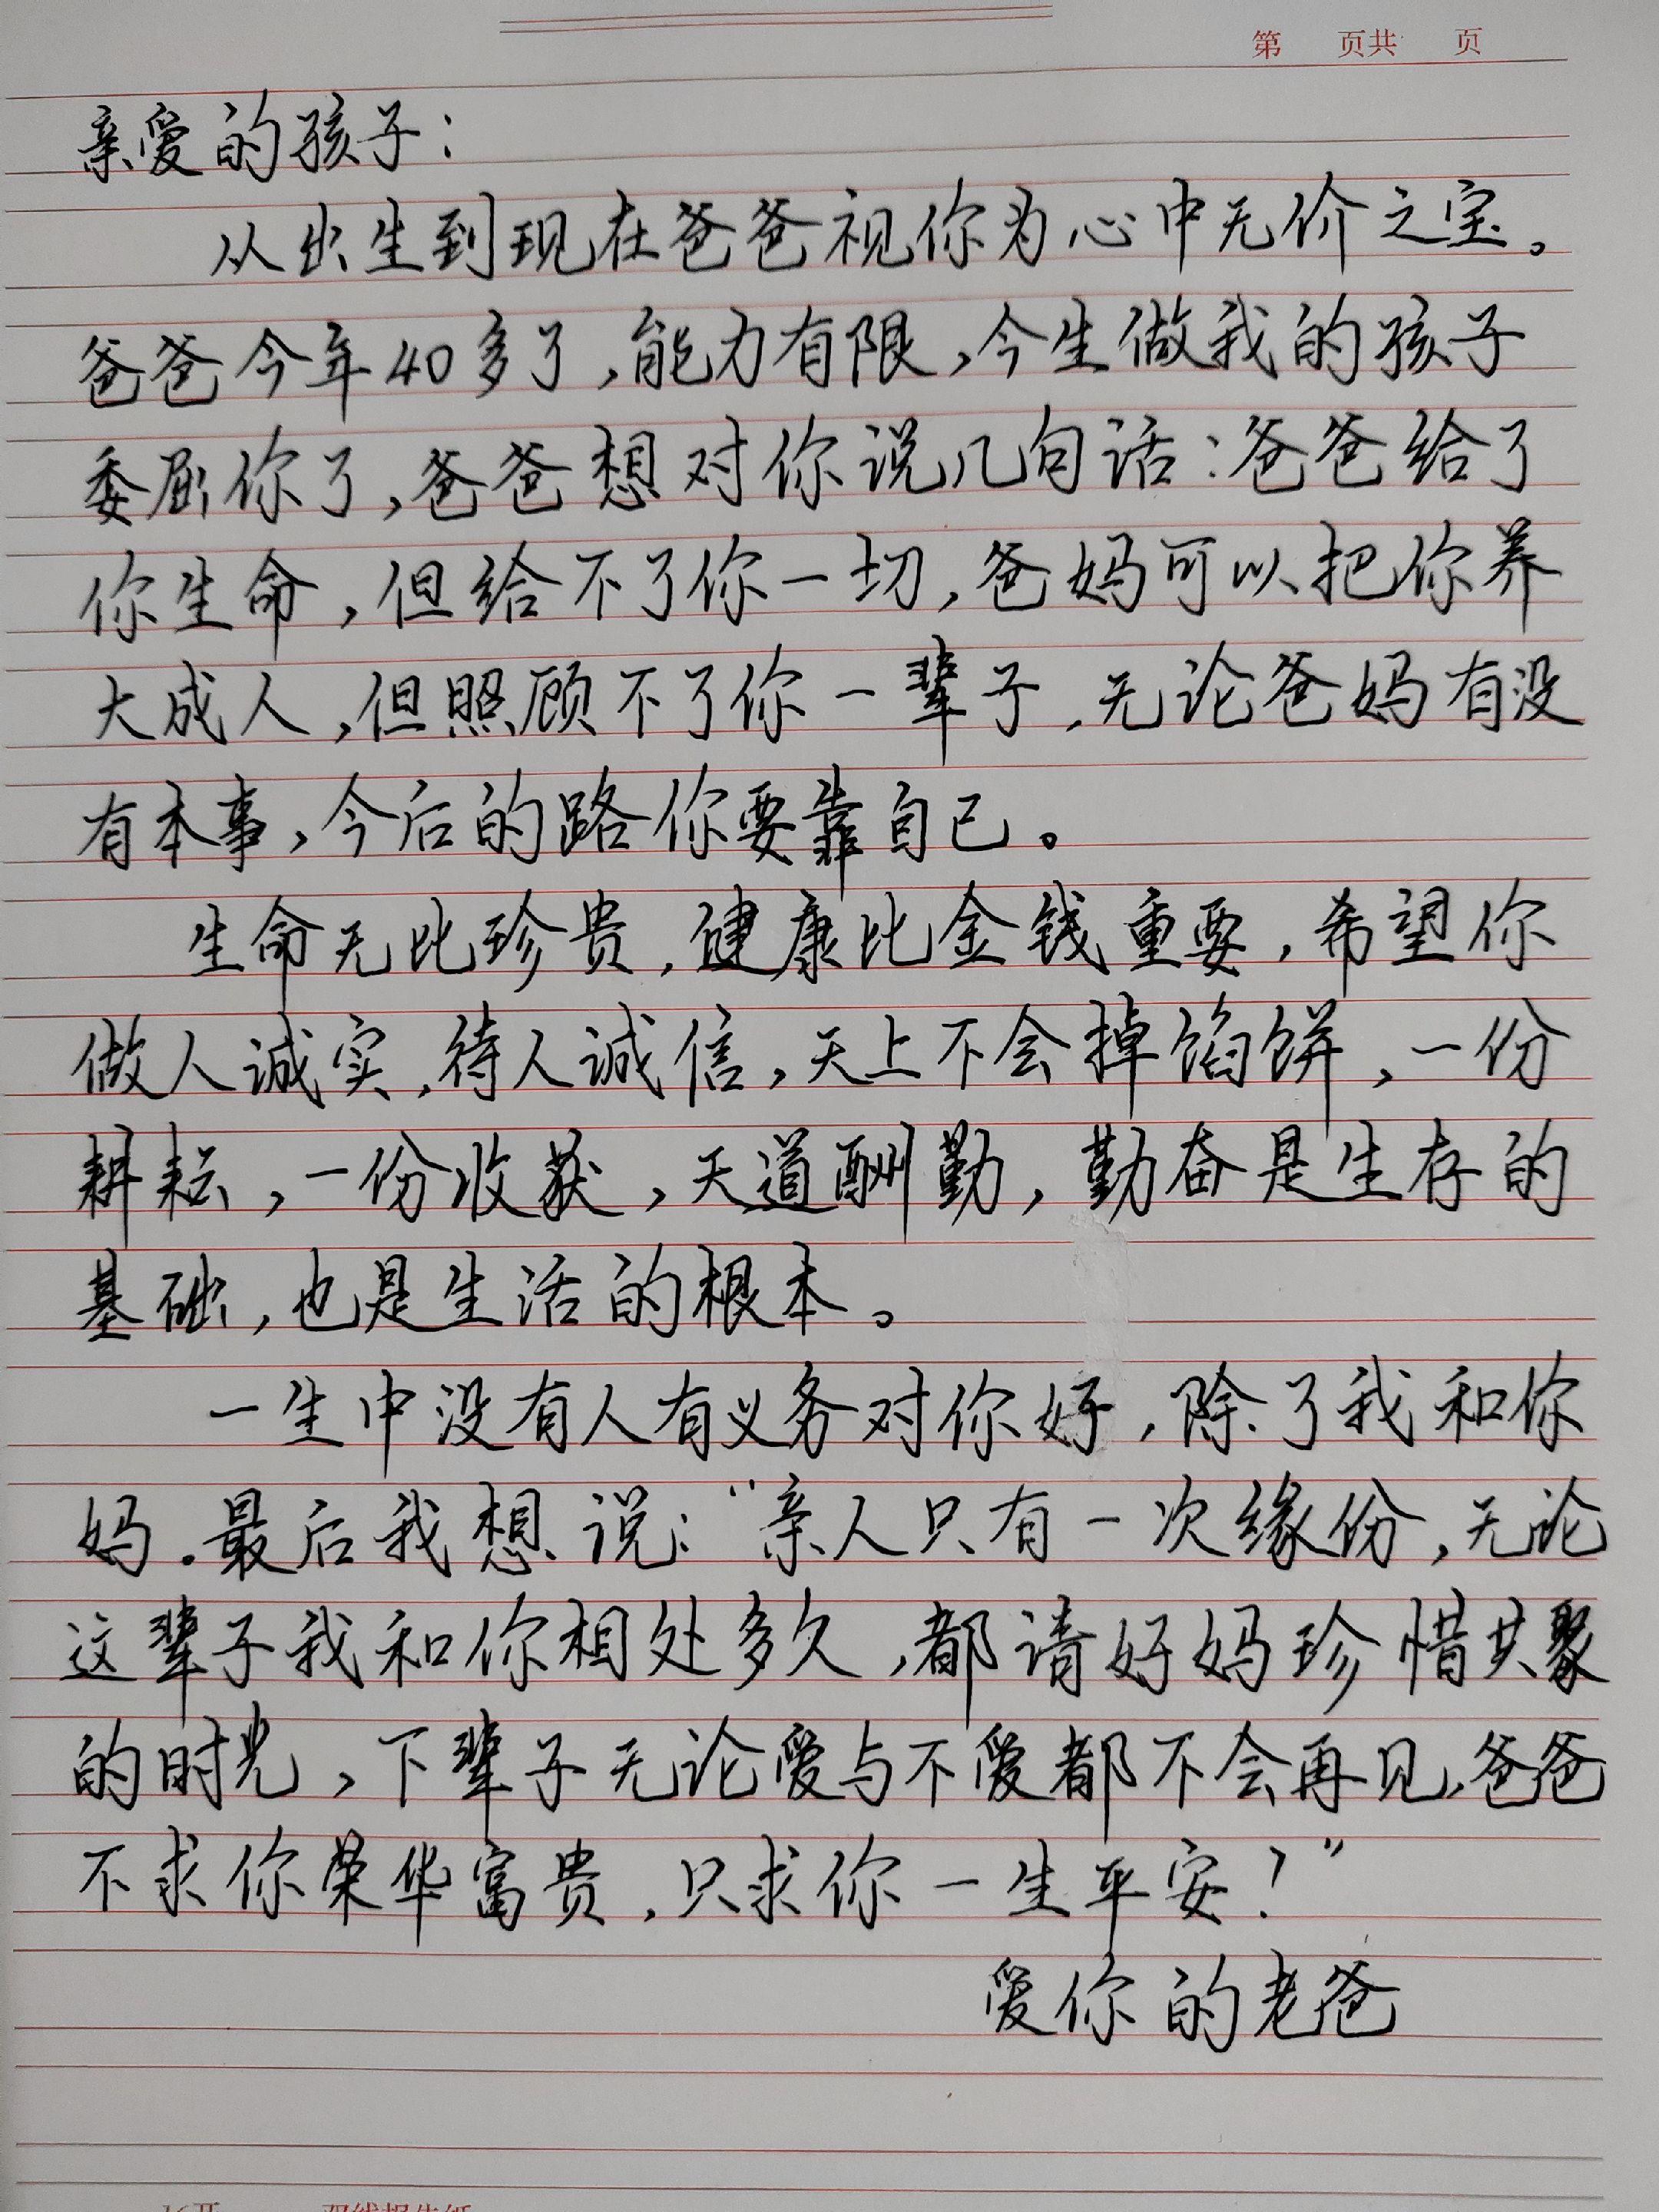 第 页共 页
亲爱的孩子：
从出生到现在爸爸视你为心中无价之宝。
爸爸今年40多了，能力有限，今生做我的孩子
委屈你了，爸爸想对你说几句话：爸爸给了
你生命，但给不了你一切，爸妈可以把你养
大成人，但照顾不了你一辈子，无论爸妈有没
有本事，今后的路你要靠自己。
生命无比珍贵，健康比金钱重要，希望你
做人诚实，待人诚信，天上不会掉馅饼，一份
耕耘，一份收获，天道酬勤，勤奋是生存的
基础，也是生活的根本。
一生中没有人有义务对你好，除了我和你
妈。最后我想说：“亲人只有一次缘份，无论
这辈子我和你相处多久，都请好妈珍惜共聚
的时光，下辈子无论爱与不爱都不会再见，爸爸
不求你荣华富贵，只求你一生平安！”
爱你的老爸
16开 双线报告纸